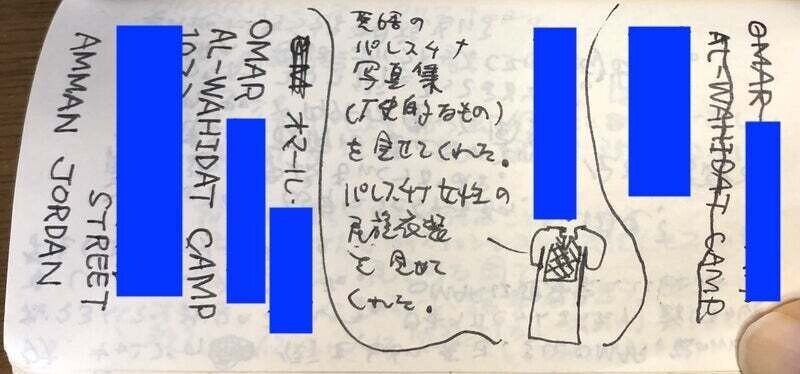 オマール・
OMAR
AL-WAHIDAT CAMP
STREET
AMMAN JORDAN
英語の
パレスチナ
写真集
(歴史的なもの)
を見せてくれた。
パレスチナ女性の
民族衣装
を見せて
くれた。
OMAR
AL-WAHIDAT CAMP